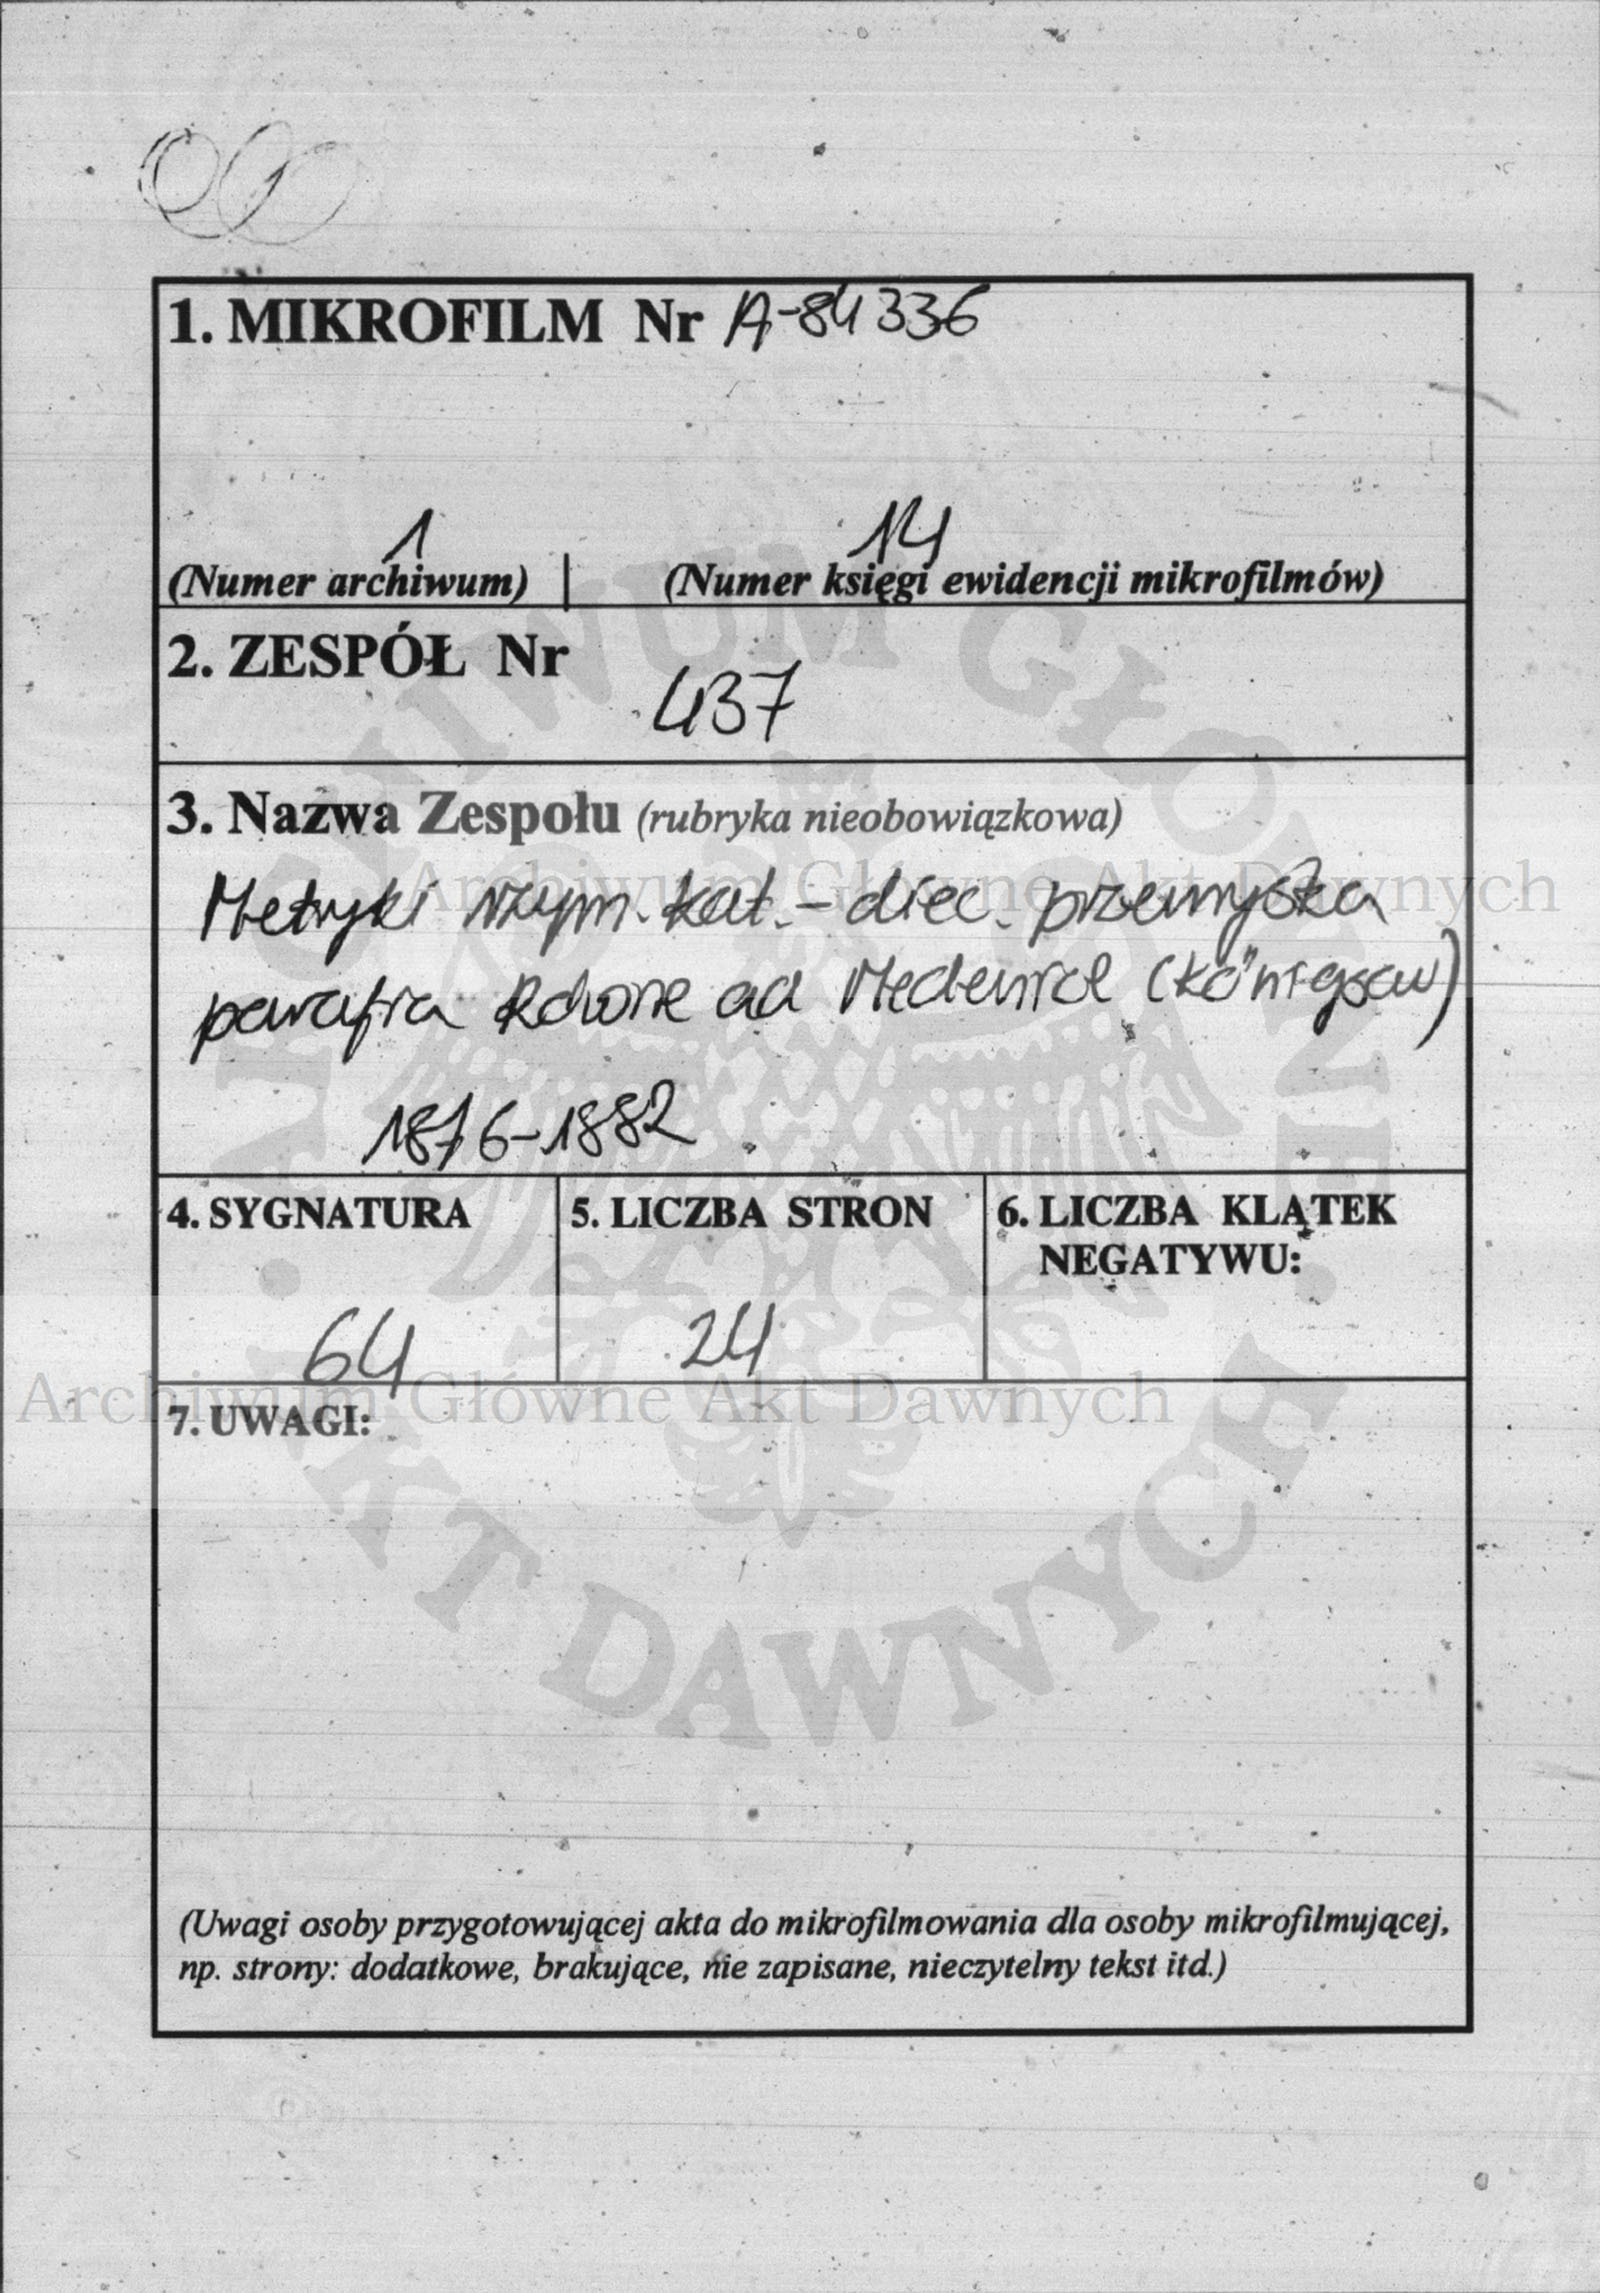 1. MIKROFILM Nr A-84336
1 14
(Numer archiwum) (Numer księgi ewidencji mikrofilmów)
2. ZESPÓŁ Nr
437
3. Nazwa Zespołu (rubryka nieobowiązkowa)
Metryki rzym.kat. - diec. przemyska
parafia Równe ad Medenice (Königsau)
1876-1882
4. SYGNATURA 5. LICZBA STRON 6. LICZBA KLĄTEK
NEGATYWU:
64 24
7. UWAGI:
(Uwagi osoby przygotowującej akta do mikrofilmowania dla osoby mikrofilmującej,
np. strony: dodatkowe, brakujące, nie zapisane, nieczytelny tekst itd.)
Archiwum Główne Akt Dawnych
Archiwum Główne Akt Dawnych
ARCHIWUM GŁÓWNE AKT DAWNYCH